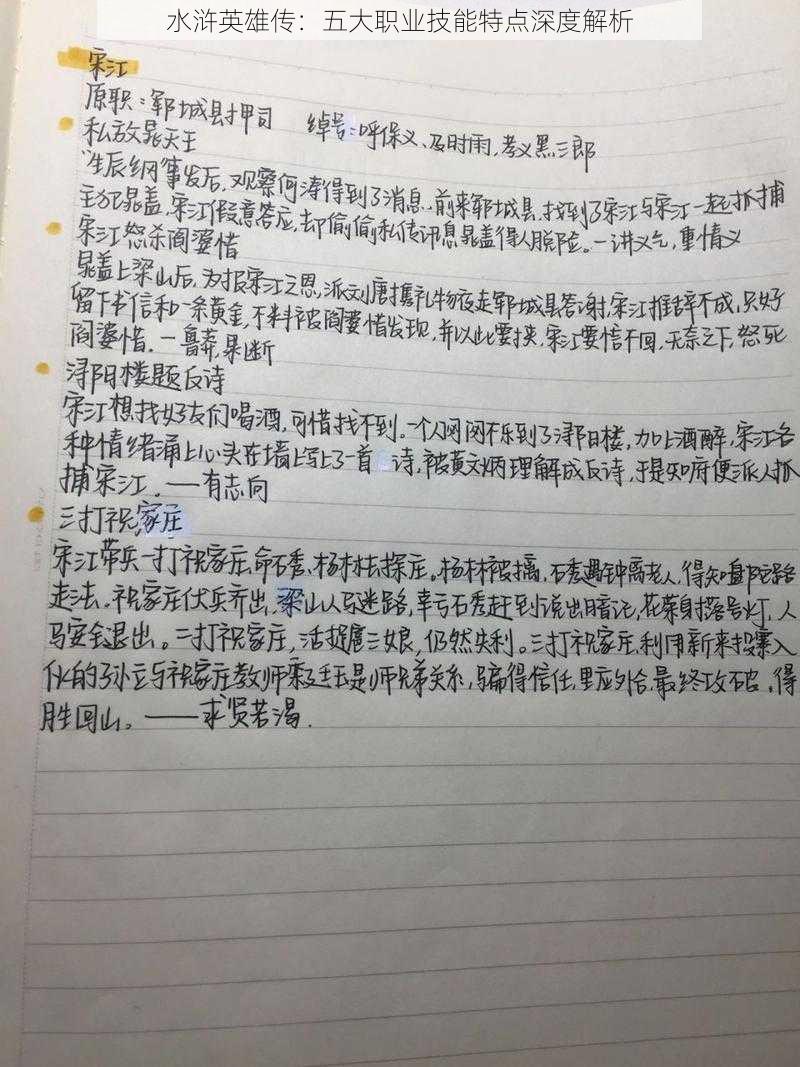 水浒英雄传：五大职业技能特点深度解析
宋江
原职：郓城县押司 绰号：呼保义、及时雨，孝义黑三郎
私放晁天王
"生辰纲"事发后，观察何涛得到了消息，前来郓城县，找到了宋江与宋江一起抓捕
主犯晁盖，宋江假意答应，却偷偷私传讯息晁盖得人脱险。—讲义气，重情义
宋江怒杀阎婆惜
晁盖上梁山后，为报宋江之恩，派刘唐携礼物夜走郓城县答谢，宋江推辞不成，只好
留下书信和一条黄金，不料被阎婆惜发现，并以此要挟，宋江要信不回，无奈之下，怒死
阎婆惜。—鲁莽，果断
浔阳楼题反诗
宋江想找好友们喝酒，可惜找不到。一个人闷闷不乐到了浔阳楼，加上酒醉，宋江各
种情绪涌上心头在墙上写了一首 诗，被黄文炳理解成反诗，于是知府便派人抓
捕宋江。——有志向
三打祝家庄
宋江带兵一打祝家庄，命石秀、杨林去探庄。杨林被擒，石秀遇钟离老人，得知盘陀路
走法。祝家庄伏兵齐出，梁山人马迷路，幸亏石秀赶到说出暗记，花荣射落号灯，人
马安全退出。二打祝家庄，活捉扈三娘，仍然失利。三打祝家庄，利用新来投寨入
伙的孙立与祝家庄教师栾廷玉是师兄弟关系，骗得信任，里应外合，最终攻破，得
胜回山。——求贤若渴.